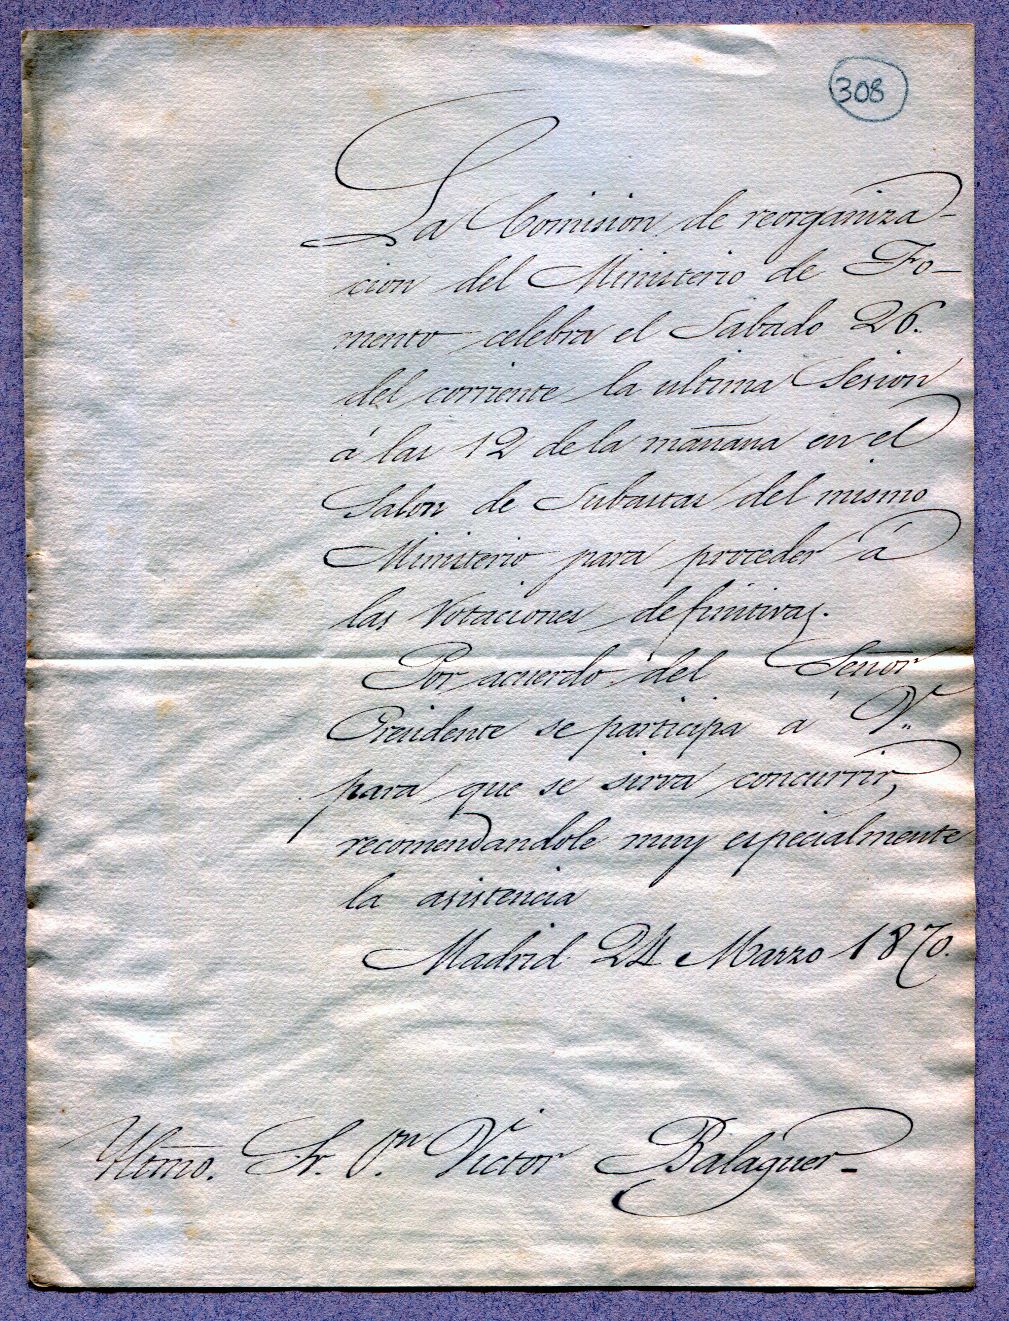 308
La Comision de reorganiza-
cion del Ministerio de Fo-
mento celebra el Sabado 26.
del corriente la ultima Sesion
á las 12 de la mañana en el
Salon de Subastas del mismo
Ministerio para proceder á
las Votaciones definitivas.
Por acuerdo del Señor
Presidente se participa á V.
para que se sirva concurrir,
recomendandole muy especialmente
la asistencia
Madrid 24 Marzo 1870.
Yltmo. Sr. Dn Victor Balaguer-